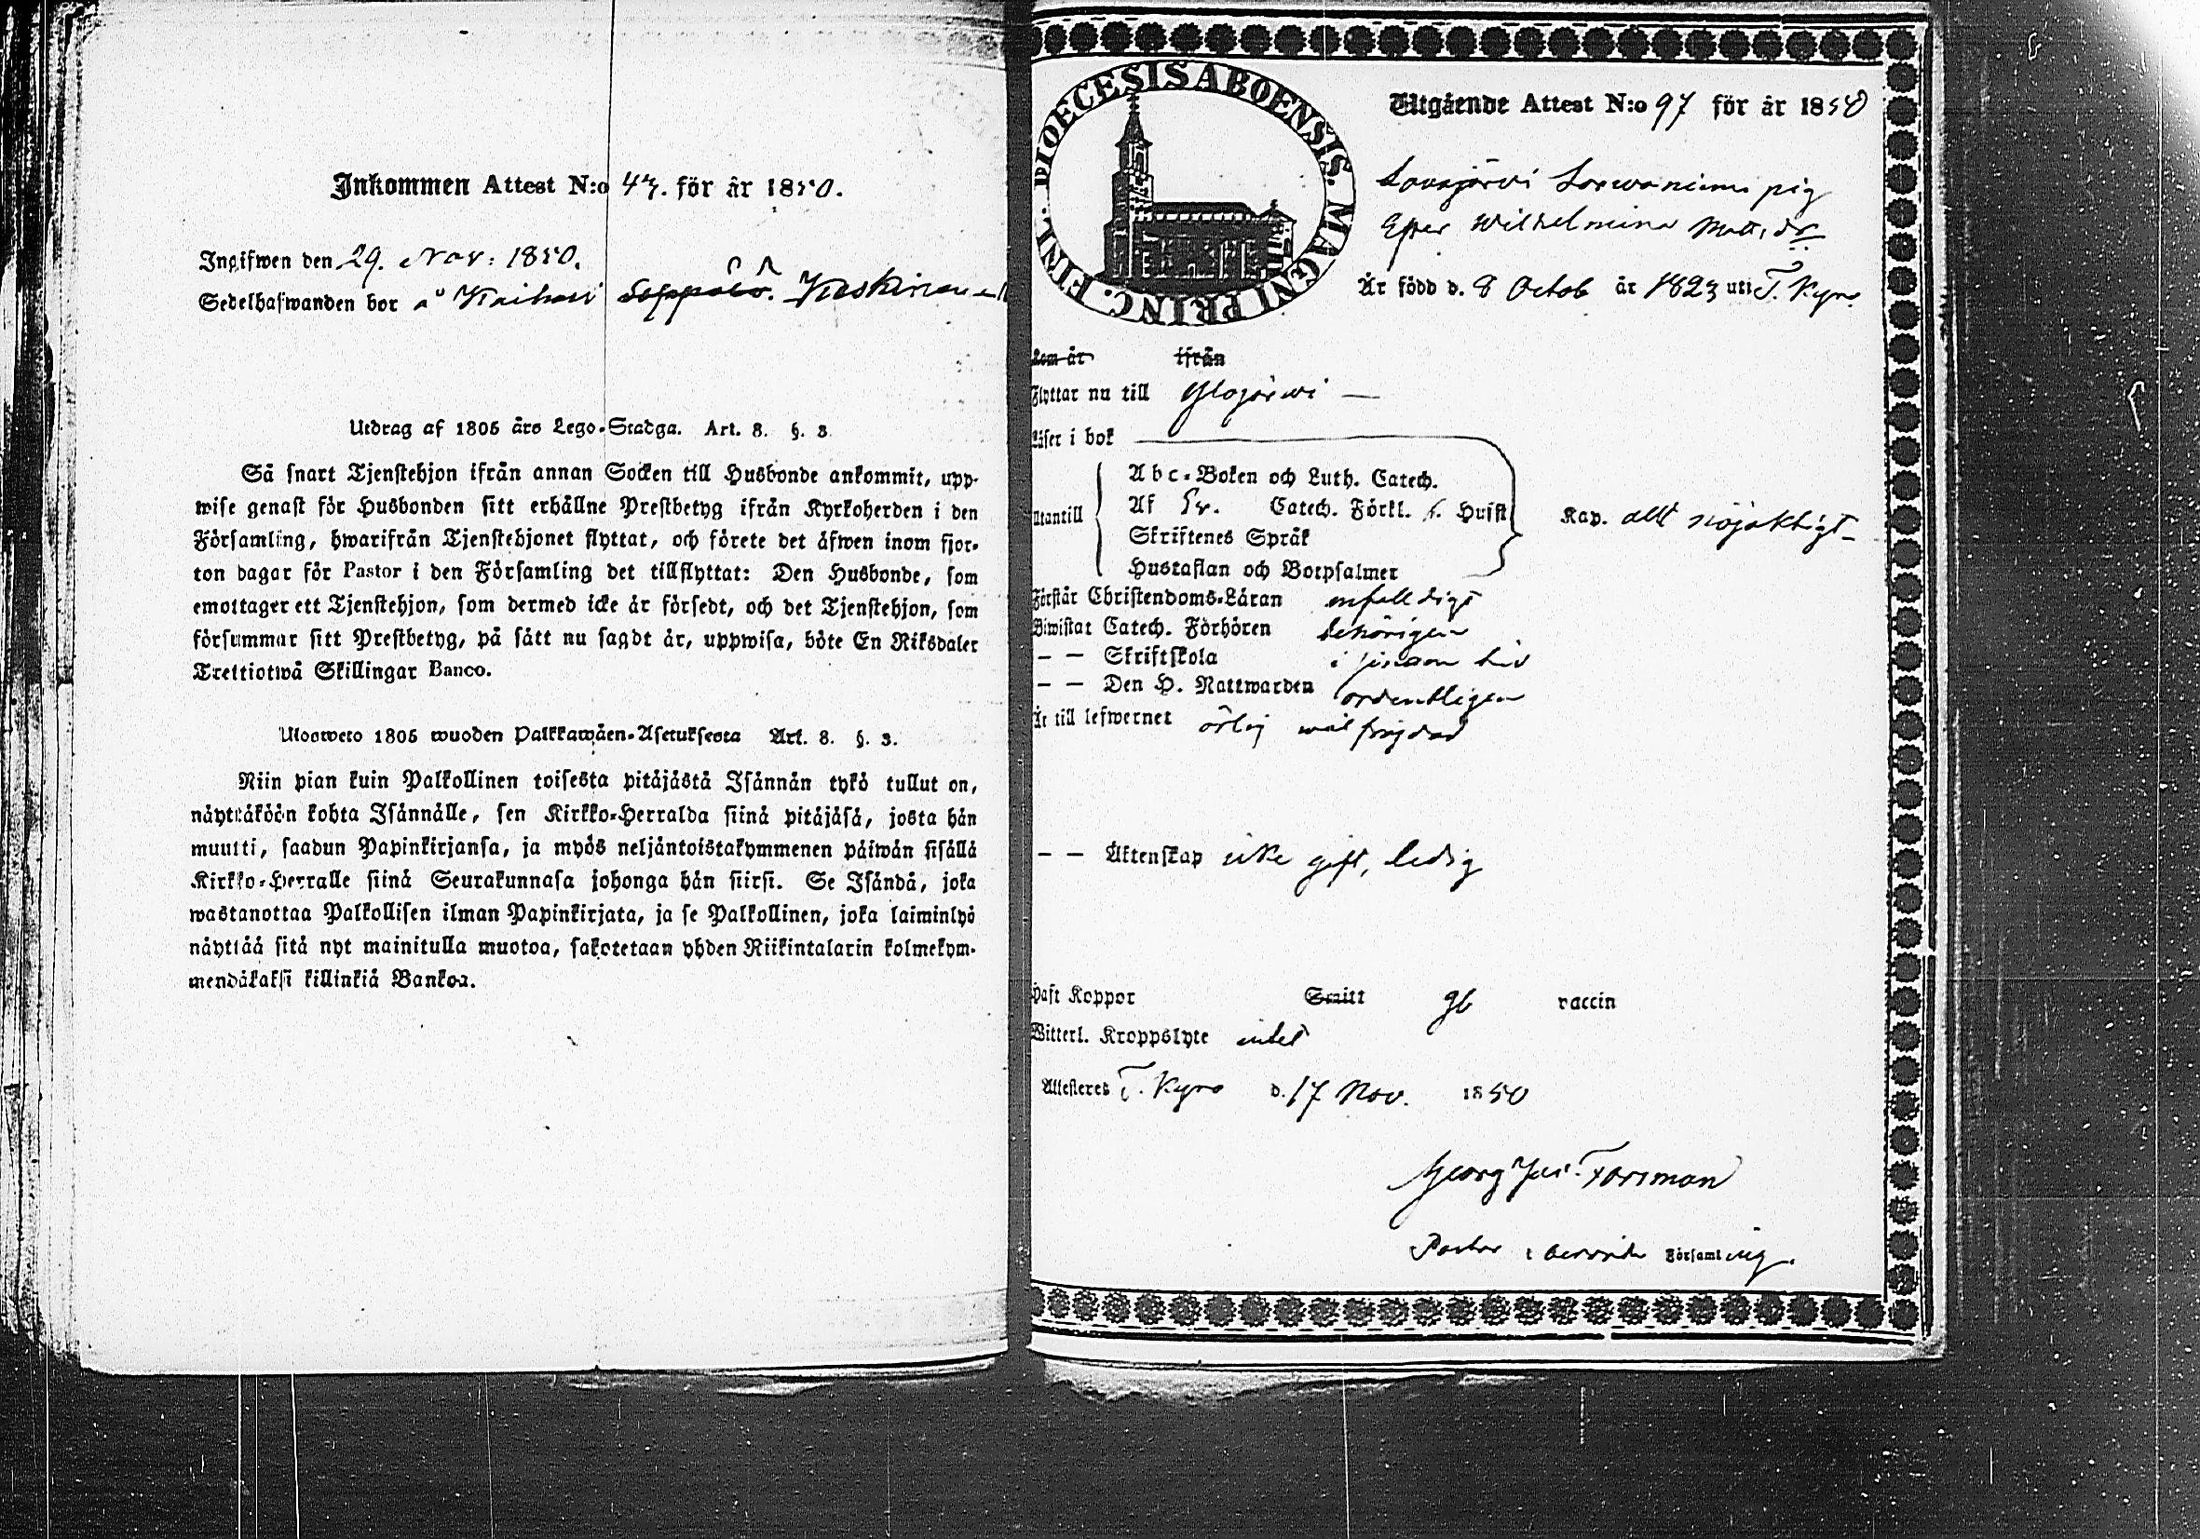 Inkommen Attest N:o 47. för år 1850.
Ingifwen den 29. Nov: 1850.
Sedelhafwanden bor å Kaihari
Utdrag af 1805 års Lego-Stadga. Art. 8. §. 3
Så snart Tjenstehjon ifrån annan Socken till Husbonde ankommit, upp-
wise genast för Husbonden sitt erhållne Prestbetyg ifrån Kyrkoherden i den
Församling, hwarifrån Tjenstehjonet flyttat, och förete det äfwen inom fjor-
ton dagar för Pastor i den Församling det tillflyttat: Den Husbonde, som
emottager ett Tjenstehjon, som dermed icke är försedt, och det Tjenstehjon, som
försummar sitt Prestbetyg, på sätt nu sagdt är, uppwisa, böte En Riksdaler
Trettiotwå Skillingar Banco.
Uloswето 1805 wuoden Palkkawäen-Asetuksesta Art. 8. §. 3.
Niin pian kuin Palkollinen toisesta pitäjästä Isännän tykö tullut on,
näyttäköön kohta Isännälle, sen Kirkko-Herralda siinä pitäjäsä, josta hän
muutti, saadun Papinkirjansa, ja myös neljäntoistakymmenen päiwän sisällä
Kirkko-Herralle siinä Seurakunnasa johonga hän siirsi. Se Isändä, joka
wastanottaa Palkollisen ilman Papinkirjata, ja se Palkollinen, joka laiminlyö
näyttää sitä nyt mainitulla muotoa, sakotetaan yhden Riikintalarin kolmekym-
mendäkaksi killinkiä Bankoa.
DIOECESIS ABOENSIS. MAGNI PRINC. FINL.
Utgående Attest N:o 97 för år 1850
pig
Wilhelmina Matt. dr
Är född d. 8 Octob år 1823 uti T. Kyro
kom år ifrån
Flyttar nu till Ylöjärwi
Läser i bok
Abc-Boken och Luth. Catech.
Utantill Af Sv. Catech. Förkl. f. Hufst
Skriftenes Språk
Hustaflan och Botpsalmer
Kap. allt nöjaktigt
Förstår Christendoms-Läran enfalldigt
Biwistat Catech. Förhören behörigen
– – Skriftskola i sinom tid
– – Den H. Nattwarden ordentligen
Är till lefwernet ärlig wäl frejdad
– – Äktenskap icke gift, ledig
Haft Koppor Smitt gb vaccin
Witterl. Kroppslyte intet
Attesteres T. Kyro d. 17 Nov. 1850
Georg Jac. Forsman
Pastor i berörde Församling.